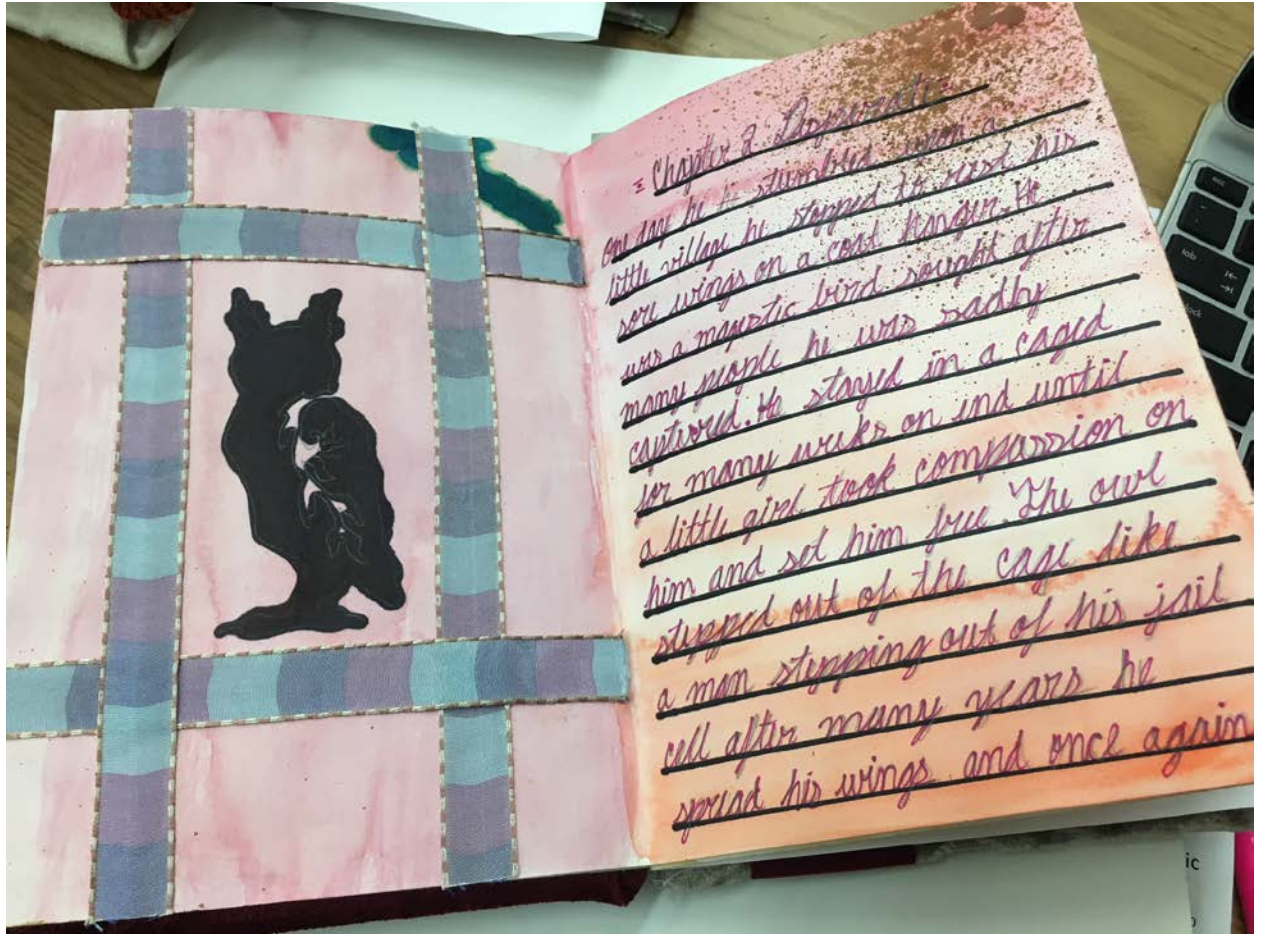 Chapter 2 Desperate
one day he stumbled upon a
little village he stopped to rest his
sore wings on a coat hanger. He
was a majestic bird sought after
many people he was sadly
captured. He stayed in a caged
for many weeks on end until
a little girl took compassion on
him and set him free. The owl
stepped out of the cage like
a man stepping out of his jail
cell after many years he
spread his wings and once again
esc
tab
lock
ic